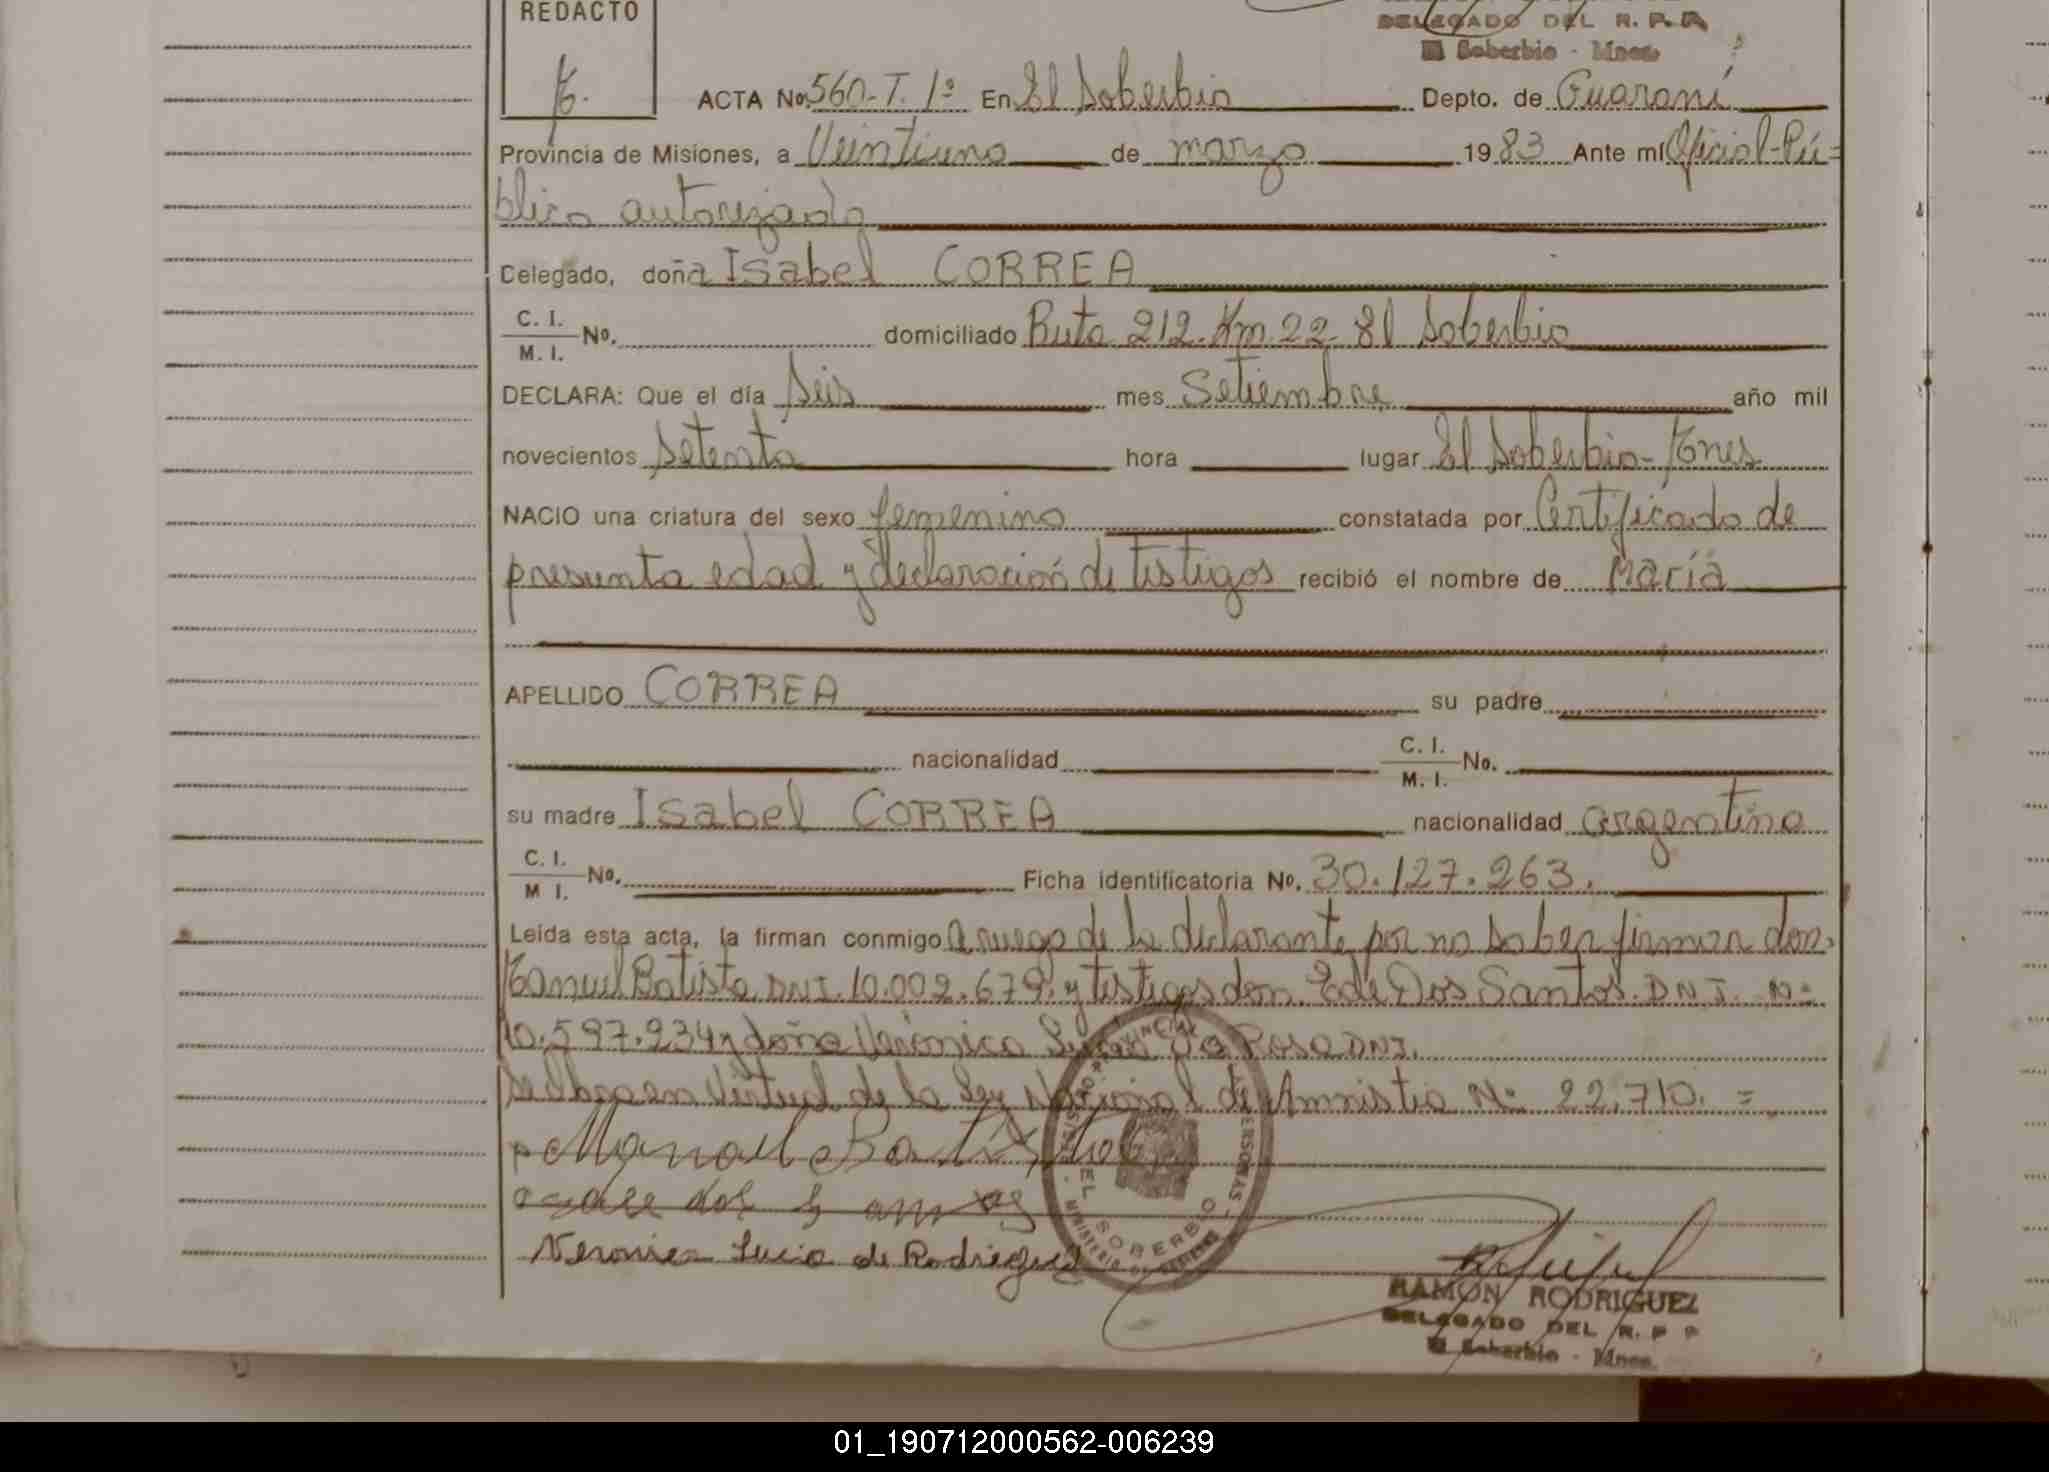 REDACTO
DELEGADO DEL R. P. P.
El Soberbio - Mnes.
ACTA No. 560-T. 1º En El Soberbio Depto. de Guaraní
Provincia de Misiones, a Veintiuno de marzo 1983 Ante mí Oficial-Pú=
blico autorizado
Celegado, doña Isabel CORREA
C. I.
M. I. No. domiciliado Ruta 212. Km 22- El Soberbio
DECLARA: Que el día Seis mes Setiembre año mil
novecientos Setenta hora lugar El Soberbio-Mnes
NACIO una criatura del sexo femenino constatada por Certificado de
presunta edad y declaración de testigos recibió el nombre de María
APELLIDO CORREA su padre
nacionalidad C. I.
M. I. No.
su madre Isabel CORREA nacionalidad argentina
C. I.
M I. No. Ficha identificatoria No. 30.127.263.
Leída esta acta, la firman conmigo a ruego de la declarante por no saber firmar don
Manuel Batista DNI. 10.002.679. y testigos don Ede Dos Santos. DNI. Nº
10.597.934 y doña Verónica Da Rosa DNI.
Se labra en Virtud de la Ley Nacional de Amnistia Nº 22.710. =
Veronica Lucia de Rodriguez
EL SOBERBIO
RAMON RODRIGUEZ
DELEGADO DEL R. P P
El Soberbio - Mnes.
01_190712000562-006239